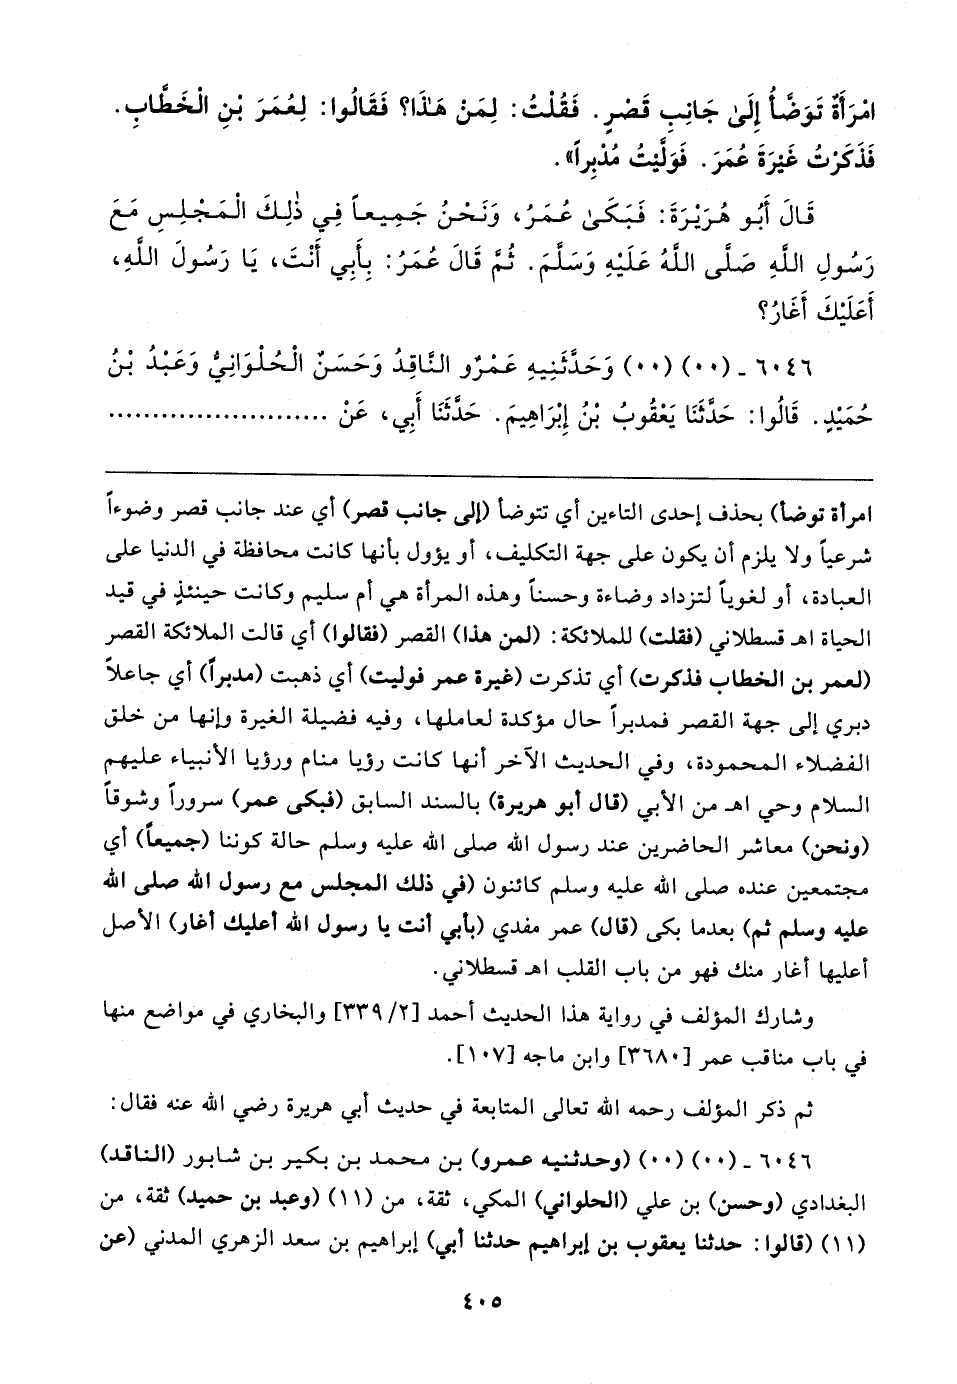 امْرَأَةٌ تَوَضَّأُ إِلَىٰ جَانِبِ قَصْرٍ. فَقُلْتُ: لِمَنْ هَـٰذَا؟ فَقَالُوا: لِعُمَرَ بْنِ الْخَطَّابِ.
فَذَكَرْتُ غَيْرَةَ عُمَرَ. فَوَلَّيْتُ مُدْبِراً».
قَالَ أَبُو هُرَيْرَةَ: فَبَكَىٰ عُمَرُ، وَنَحْنُ جَمِيعاً فِي ذٰلِكَ الْمَجْلِسِ مَعَ
رَسُولِ اللَّهِ صَلَّى اللَّهُ عَلَيْهِ وَسَلَّمَ. ثُمَّ قَالَ عُمَرُ: بِأَبِي أَنْتَ، يَا رَسُولَ اللَّهِ،
أَعَلَيْكَ أَغَارُ؟
٦٠٤٦ ـ (٠٠) (٠٠) وَحَدَّثَنِيهِ عَمْرٌو النَّاقِدُ وَحَسَنٌ الْحُلْوَانِيُّ وَعَبْدُ بْنُ
حُمَيْدٍ. قَالُوا: حَدَّثَنَا يَعْقُوبُ بْنُ إِبْرَاهِيمَ. حَدَّثَنَا أَبِي، عَنْ .........................
امرأة توضأ) بحذف إحدى التاءين أي تتوضأ (إلى جانب قصر) أي عند جانب قصر وضوءاً
شرعياً ولا يلزم أن يكون على جهة التكليف، أو يؤول بأنها كانت محافظة في الدنيا على
العبادة، أو لغوياً لتزداد وضاءة وحسناً وهذه المرأة هي أم سليم وكانت حينئذٍ في قيد
الحياة اهـ قسطلاني (فقلت) للملائكة: (لمن هذا) القصر (فقالوا) أي قالت الملائكة القصر
(لعمر بن الخطاب فذكرت) أي تذكرت (غيرة عمر فوليت) أي ذهبت (مدبراً) أي جاعلاً
دبري إلى جهة القصر فمدبراً حال مؤكدة لعاملها، وفيه فضيلة الغيرة وإنها من خلق
الفضلاء المحمودة، وفي الحديث الآخر أنها كانت رؤيا منام ورؤيا الأنبياء عليهم
السلام وحي اهـ من الأبي (قال أبو هريرة) بالسند السابق (فبكى عمر) سروراً وشوقاً
(ونحن) معاشر الحاضرين عند رسول الله صلى الله عليه وسلم حالة كوننا (جميعاً) أي
مجتمعين عنده صلى الله عليه وسلم كائنون (في ذلك المجلس مع رسول الله صلى الله
عليه وسلم ثم) بعدما بكى (قال) عمر مفدي (بأبي أنت يا رسول الله أعليك أغار) الأصل
أعليها أغار منك فهو من باب القلب اهـ قسطلاني.
وشارك المؤلف في رواية هذا الحديث أحمد [٢/ ٣٣٩] والبخاري في مواضع منها
في باب مناقب عمر [٣٦٨٠] وابن ماجه [١٠٧].
ثم ذكر المؤلف رحمه الله تعالى المتابعة في حديث أبي هريرة رضي الله عنه فقال:
٦٠٤٦ ـ (٠٠) (٠٠) (وحدثنيه عمرو) بن محمد بن بكير بن شابور (الناقد)
البغدادي (وحسن) بن علي (الحلواني) المكي، ثقة، من (١١) (وعبد بن حميد) ثقة، من
(١١) (قالوا: حدثنا يعقوب بن إبراهيم حدثنا أبي) إبراهيم بن سعد الزهري المدني (عن
٤٠٥